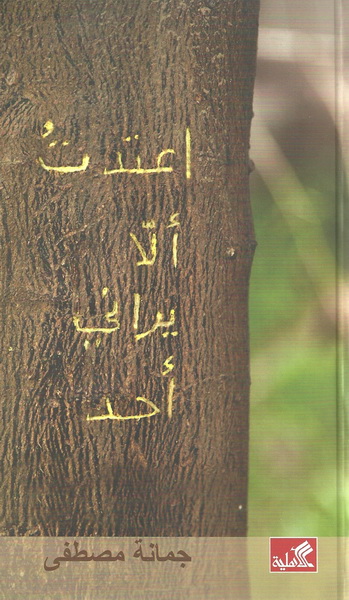 اعتدتُ
ألّا
يراني
أحد
جمانة مصطفى
الأهلية